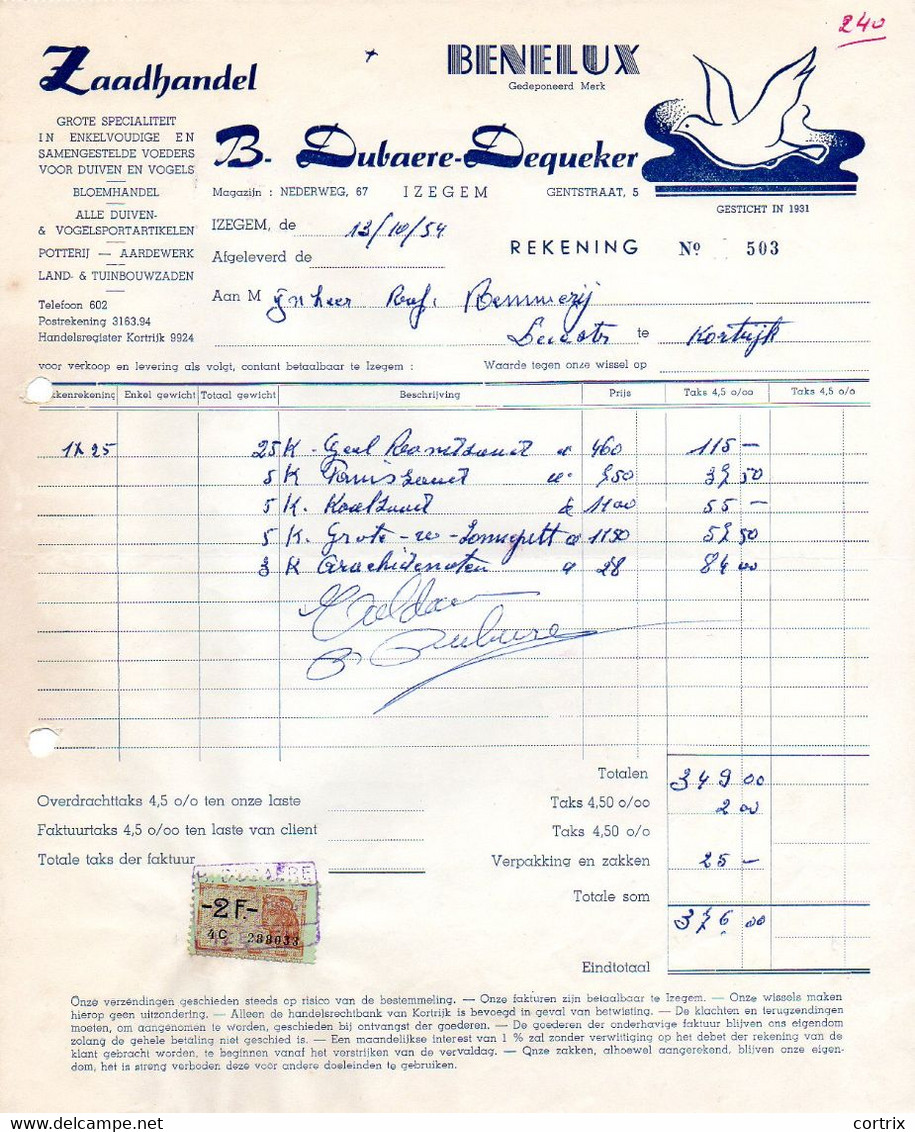 240
Zaadhandel
BENELUX
Gedeponeerd Merk
GROTE SPECIALITEIT
IN ENKELVOUDIGE EN
SAMENGESTELDE VOEDERS
VOOR DUIVEN EN VOGELS
BLOEMHANDEL
ALLE DUIVEN-
& VOGELSPORTARTIKELEN
POTTERIJ — AARDEWERK
LAND- & TUINBOUWZADEN
Telefoon 602
Postrekening 3163.94
Handelsregister Kortrijk 9924
B. Dubaere-Dequeker
Magazijn : NEDERWEG, 67 IZEGEM GENTSTRAAT, 5
GESTICHT IN 1931
IZEGEM, de 13/10/54
REKENING No 503
Afgeleverd de
Aan Mijnheer
te Kortrijk
voor verkoop en levering als volgt, contant betaalbaar te Izegem : Waarde tegen onze wissel op
kenrekening Enkel gewicht Totaal gewicht Beschrijving Prijs Taks 4,5 o/oo Taks 4,5 o/o
25 K Geel a 460 115 —
5 K 750 37 50
5 K. 1100 55 —
5 K. Grote 1150 57 50
3 K Arachidenoten a 28 84 00
Voldaan
B Dubaere
Totalen 349 00
Overdrachttaks 4,5 o/o ten onze laste Taks 4,50 o/oo 2 00
Faktuurtaks 4,5 o/oo ten laste van client Taks 4,50 o/o
Totale taks der faktuur Verpakking en zakken 25 —
Totale som
376 00
Eindtotaal
-2 F.-
4C 288033
Onze verzendingen geschieden steeds op risico van de bestemmeling. — Onze fakturen zijn betaalbaar te Izegem. — Onze wissels maken
hierop geen uitzondering. — Alleen de handelsrechtbank van Kortrijk is bevoegd in geval van betwisting. — De klachten en terugzendingen
moeten, om aangenomen te worden, geschieden bij ontvangst der goederen. — De goederen der onderhavige faktuur blijven ons eigendom
zolang de gehele betaling niet geschied is. — Een maandelijkse interest van 1 % zal zonder verwittiging op het debet der rekening van de
klant gebracht worden, te beginnen vanaf het verstrijken van de vervaldag. — Qnze zakken, alhoewel aangerekend, blijven onze eigen-
dom, het is streng verboden deze voor andere doeleinden te gebruiken.
cortrix